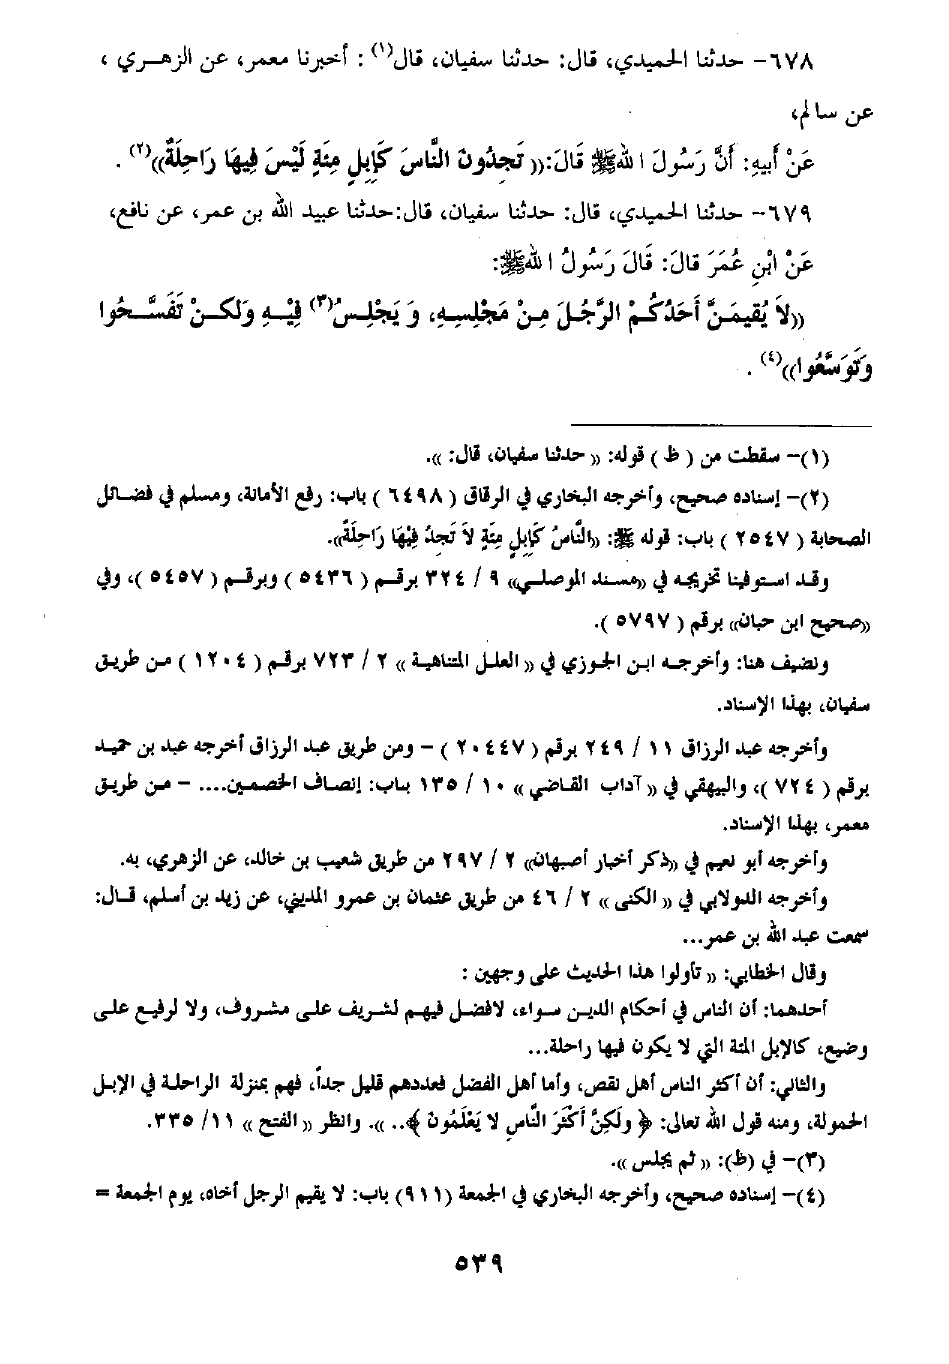 ٦٧٨- حدثنا الحميدي، قال: حدثنا سفيان، قال(١) : أخبرنا معمر، عن الزهري ،
عن سالم،
عَنْ أَبِيهِ: أَنَّ رَسُولَ اللهِ ﷺ قَالَ:((تَجِدُونَ النَّاسَ كَإِبِلٍ مِئَةٍ لَيْسَ فِيهَا رَاحِلَةٌ))(٢) .
٦٧٩- حدثنا الحميدي، قال: حدثنا سفيان، قال:حدثنا عبيد الله بن عمر، عن نافع،
عَنْ ابْنِ عُمَرَ قَالَ: قَالَ رَسُولُ اللهِ ﷺ:
((لاَ يُقِيمَنَّ أَحَدُكُمْ الرَّجُلَ مِنْ مَجْلِسِهِ، وَ يَجْلِسُ(٣) فِيْهِ وَلَكِنْ تَفَسَّحُوا
وَتَوَسَّعُوا))(٤) .
(١)- سقطت من ( ظ ) قوله: (( حدثنا سفيان، قال: )).
(٢)- إسناده صحيح، وأخرجه البخاري في الرقاق ( ٦٤٩٨ ) باب: رفع الأمانة، ومسلم في فضائل
الصحابة ( ٢٥٤٧ ) باب: قوله ﷺ: ((النَّاسُ كَإِبِلٍ مِئَةٍ لاَ تَجِدُ فِيْهَا رَاحِلَةً)).
وقد استوفينا تخريجه في ((مسند الموصلي)) ٩ / ٣٢٤ برقم ( ٥٤٣٦ ) وبرقم ( ٥٤٥٧ )، وفي
((صحيح ابن حبان)) برقم ( ٥٧٩٧ ).
ونضيف هنا: وأخرجه ابن الجوزي في (( العلل المتناهية )) ٢ / ٧٢٣ برقم ( ١٢٠٤ ) من طريق
سفيان، بهذا الإسناد.
وأخرجه عبد الرزاق ١١ / ٢٤٩ برقم ( ٢٠٤٤٧ ) – ومن طريق عبد الرزاق أخرجه عبد بن حميد
برقم ( ٧٢٤ )، والبيهقي في (( آداب القاضي )) ١٠ / ١٣٥ باب: إنصاف الخصمين.... – من طريق
معمر، بهذا الإسناد.
وأخرجه أبو نعيم في ((ذكر أخبار أصبهان)) ٢ / ٢٩٧ من طريق شعيب بن خالد، عن الزهري، به.
وأخرجه الدولابي في (( الكنى )) ٢ / ٤٦ من طريق عثمان بن عمرو المديني، عن زيد بن أسلم، قال:
سمعت عبد الله بن عمر...
وقال الخطابي: (( تأولوا هذا الحديث على وجهين :
أحدهما: أن الناس في أحكام الدين سواء، لافضل فيهم لشريف على مشروف، ولا لرفيع على
وضيع، كالإبل المئة التي لا يكون فيها راحلة...
والثاني: أن أكثر الناس أهل نقص، وأما أهل الفضل فعددهم قليل جداً، فهم بمنزلة الراحلة في الإبل
الحمولة، ومنه قول الله تعالى: ﴿ وَلَكِنَّ أَكْثَرَ النَّاسِ لاَ يَعْلَمُونَ ﴾.. )). وانظر (( الفتح )) ١١/ ٣٣٥.
(٣)- في (ظ): (( ثم يجلس )).
(٤)- إسناده صحيح، وأخرجه البخاري في الجمعة (٩١١) باب: لا يقيم الرجل أخاه، يوم الجمعة =
٥٣٩